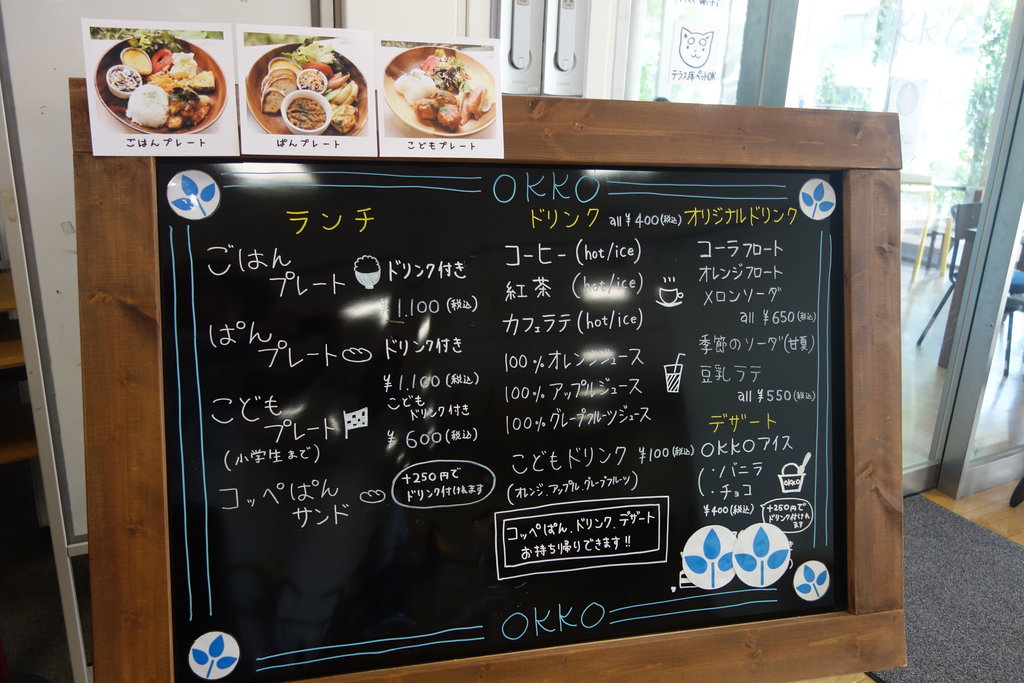 Free WiFi
テラス席ペットOK
OKKO
ごはんプレート
ぱんプレート
こどもプレート
OKKO
ランチ
ごはん
プレート
ドリンク付き
1.100 (税込)
ぱん
プレート
ドリンク付き
¥1.100 (税込)
こども
プレート
(小学生まで)
こども
ドリンク付き
¥600 (税込)
コッペぱん
サンド
+250円で
ドリンク付けれます
ドリンク all ¥400 (税込)
コーヒー (hot/ice)
紅茶 (hot/ice)
カフェラテ (hot/ice)
100%オレンジジュース
100%アップルジュース
100%グレープフルーツジュース
こどもドリンク ¥100 (税込)
(オレンジ.アップル.グレープフルーツ)
コッペぱん.ドリンク.デザート
お持ち帰りできます!!
オリジナルドリンク
コーラフロート
オレンジフロート
メロンソーダ
all ¥650 (税込)
季節のソーダ(甘夏)
豆乳ラテ
all ¥550 (税込)
デザート
OKKOアイス
(・バニラ
・チョコ
OKKO
¥400 (税込)
+250円で
ドリンク付けれ
ます
OKKO